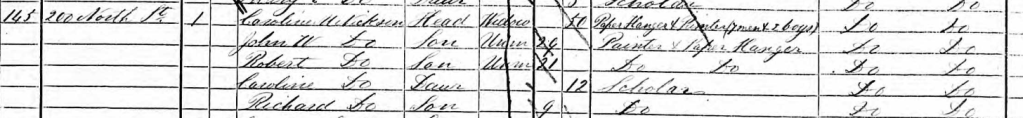 145 200 North St 1 Caroline Head Widow 50 Paper Hanger & Painter (7 men & 2 boys) Do Do
John W Do Son Unm 24 Painter & Paper Hanger Do Do
Robert Do Son Unm 21 Do Do Do Do
Caroline Do Daur 12 Scholar Do Do
Richard Do Son 9 Do Do Do